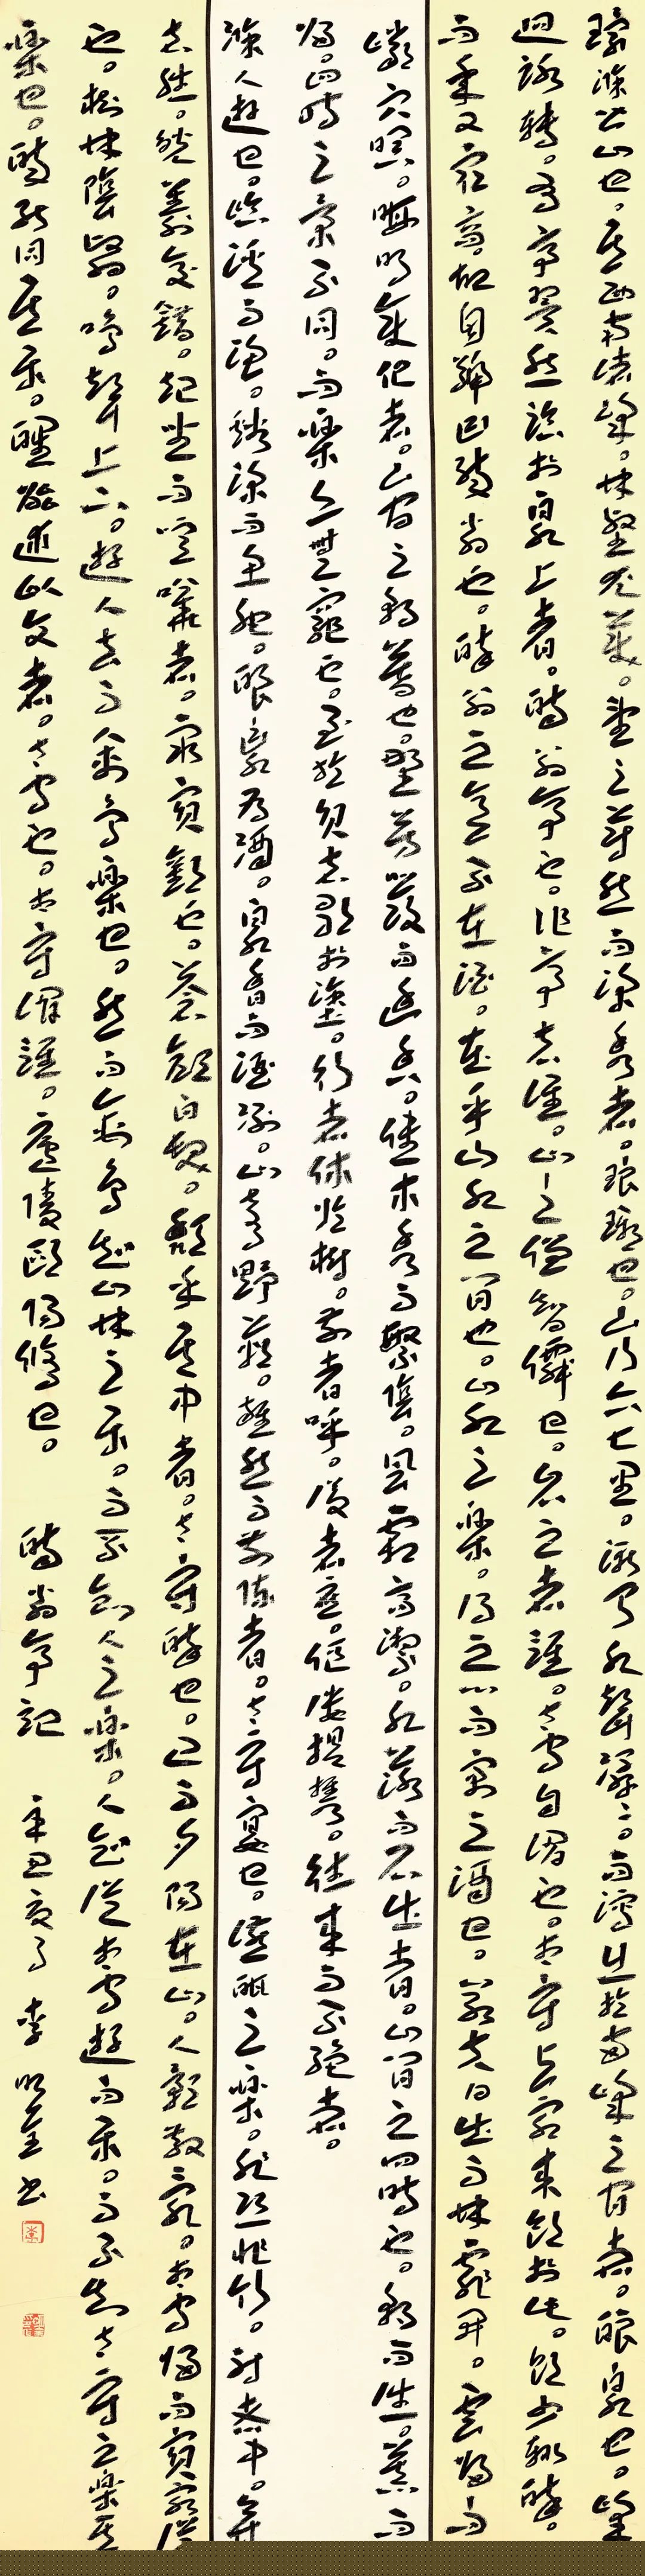 環滁皆山也。其西南諸峰。林壑尤美。望之蔚然而深秀者。琅琊也。山行六七里。漸聞水聲潺〻。而瀉出於兩峰之間者。釀泉也。峰
迴路轉。有亭翼然臨於泉上者。醉翁亭也。作亭者誰。山之僧智僊也。名之者誰。太守自謂也。太守與客來飲於此。飲少輒醉。
而年又最高。故自號曰醉翁也。醉翁之意不在酒。在乎山水之間也。山水之樂。得之心而寓之酒也。若夫日出而林霏開。雲歸而
巖穴暝。晦明變化者。山間之朝暮也。野芳發而幽香。佳木秀而繁陰。風霜高潔。水落而石出者。山間之四時也。朝而往。暮而
歸。四時之景不同。而樂亦無窮也。至於負者歌於塗。行者休於樹。前者呼。後者應。傴僂提攜。往來而不絕者。
滁人遊也。臨溪而漁。溪深而魚肥。釀泉為酒。泉香而酒洌。山肴野蔌。雜然而前陳者。太守宴也。宴酣之樂。非絲非竹。射者中。弈
者勝。觥籌交錯。起坐而喧嘩者。眾賓歡也。蒼顏白髮。頹乎其中者。太守醉也。已而夕陽在山。人影散亂。太守歸而賓客從
也。樹林陰翳。鳴聲上下。遊人去而禽鳥樂也。然而禽鳥知山林之樂。而不知人之樂。人知從太守遊而樂。而不知太守之樂其
樂也。醉能同其樂。醒能述以文者。太守也。太守謂誰。廬陵歐陽脩也。 醉翁亭記 辛丑夏月 李明 書